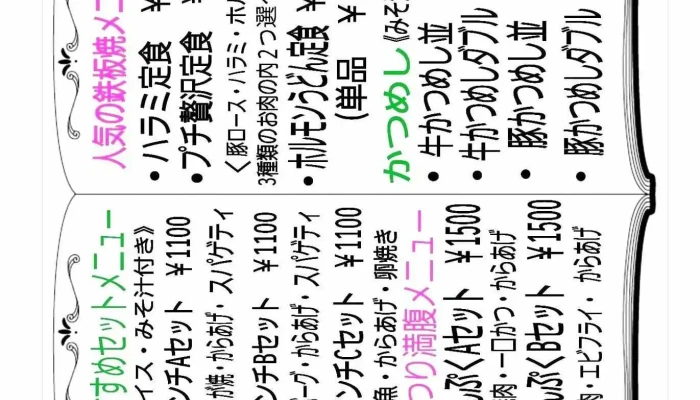 すすめセットメニュー
イス・みそ汁付き》
ンチAセット ￥1100
が焼・からあげ・スパゲティ
ンチBセット ￥1100
ーグ・からあげ・スパゲティ
ンチCセット ￥1100
魚・からあげ・卵焼き
つり満腹メニュー
んぷくAセット ￥1500
肉・一口かつ・からあげ
んぷくBセット ￥1500
肉・エビフライ・からあげ
人気の鉄板焼メニ
・ハラミ定食 ￥
・プチ贅沢定食 ￥
〈豚ロース・ハラミ・ホル
3種類のお肉の内２つ選べ
・ホルモンうどん定食 ￥
(単品 ￥
かつめし《みそ
・牛かつめし並
・牛かつめしダブル
・豚かつめし並
・豚かつめしダブル